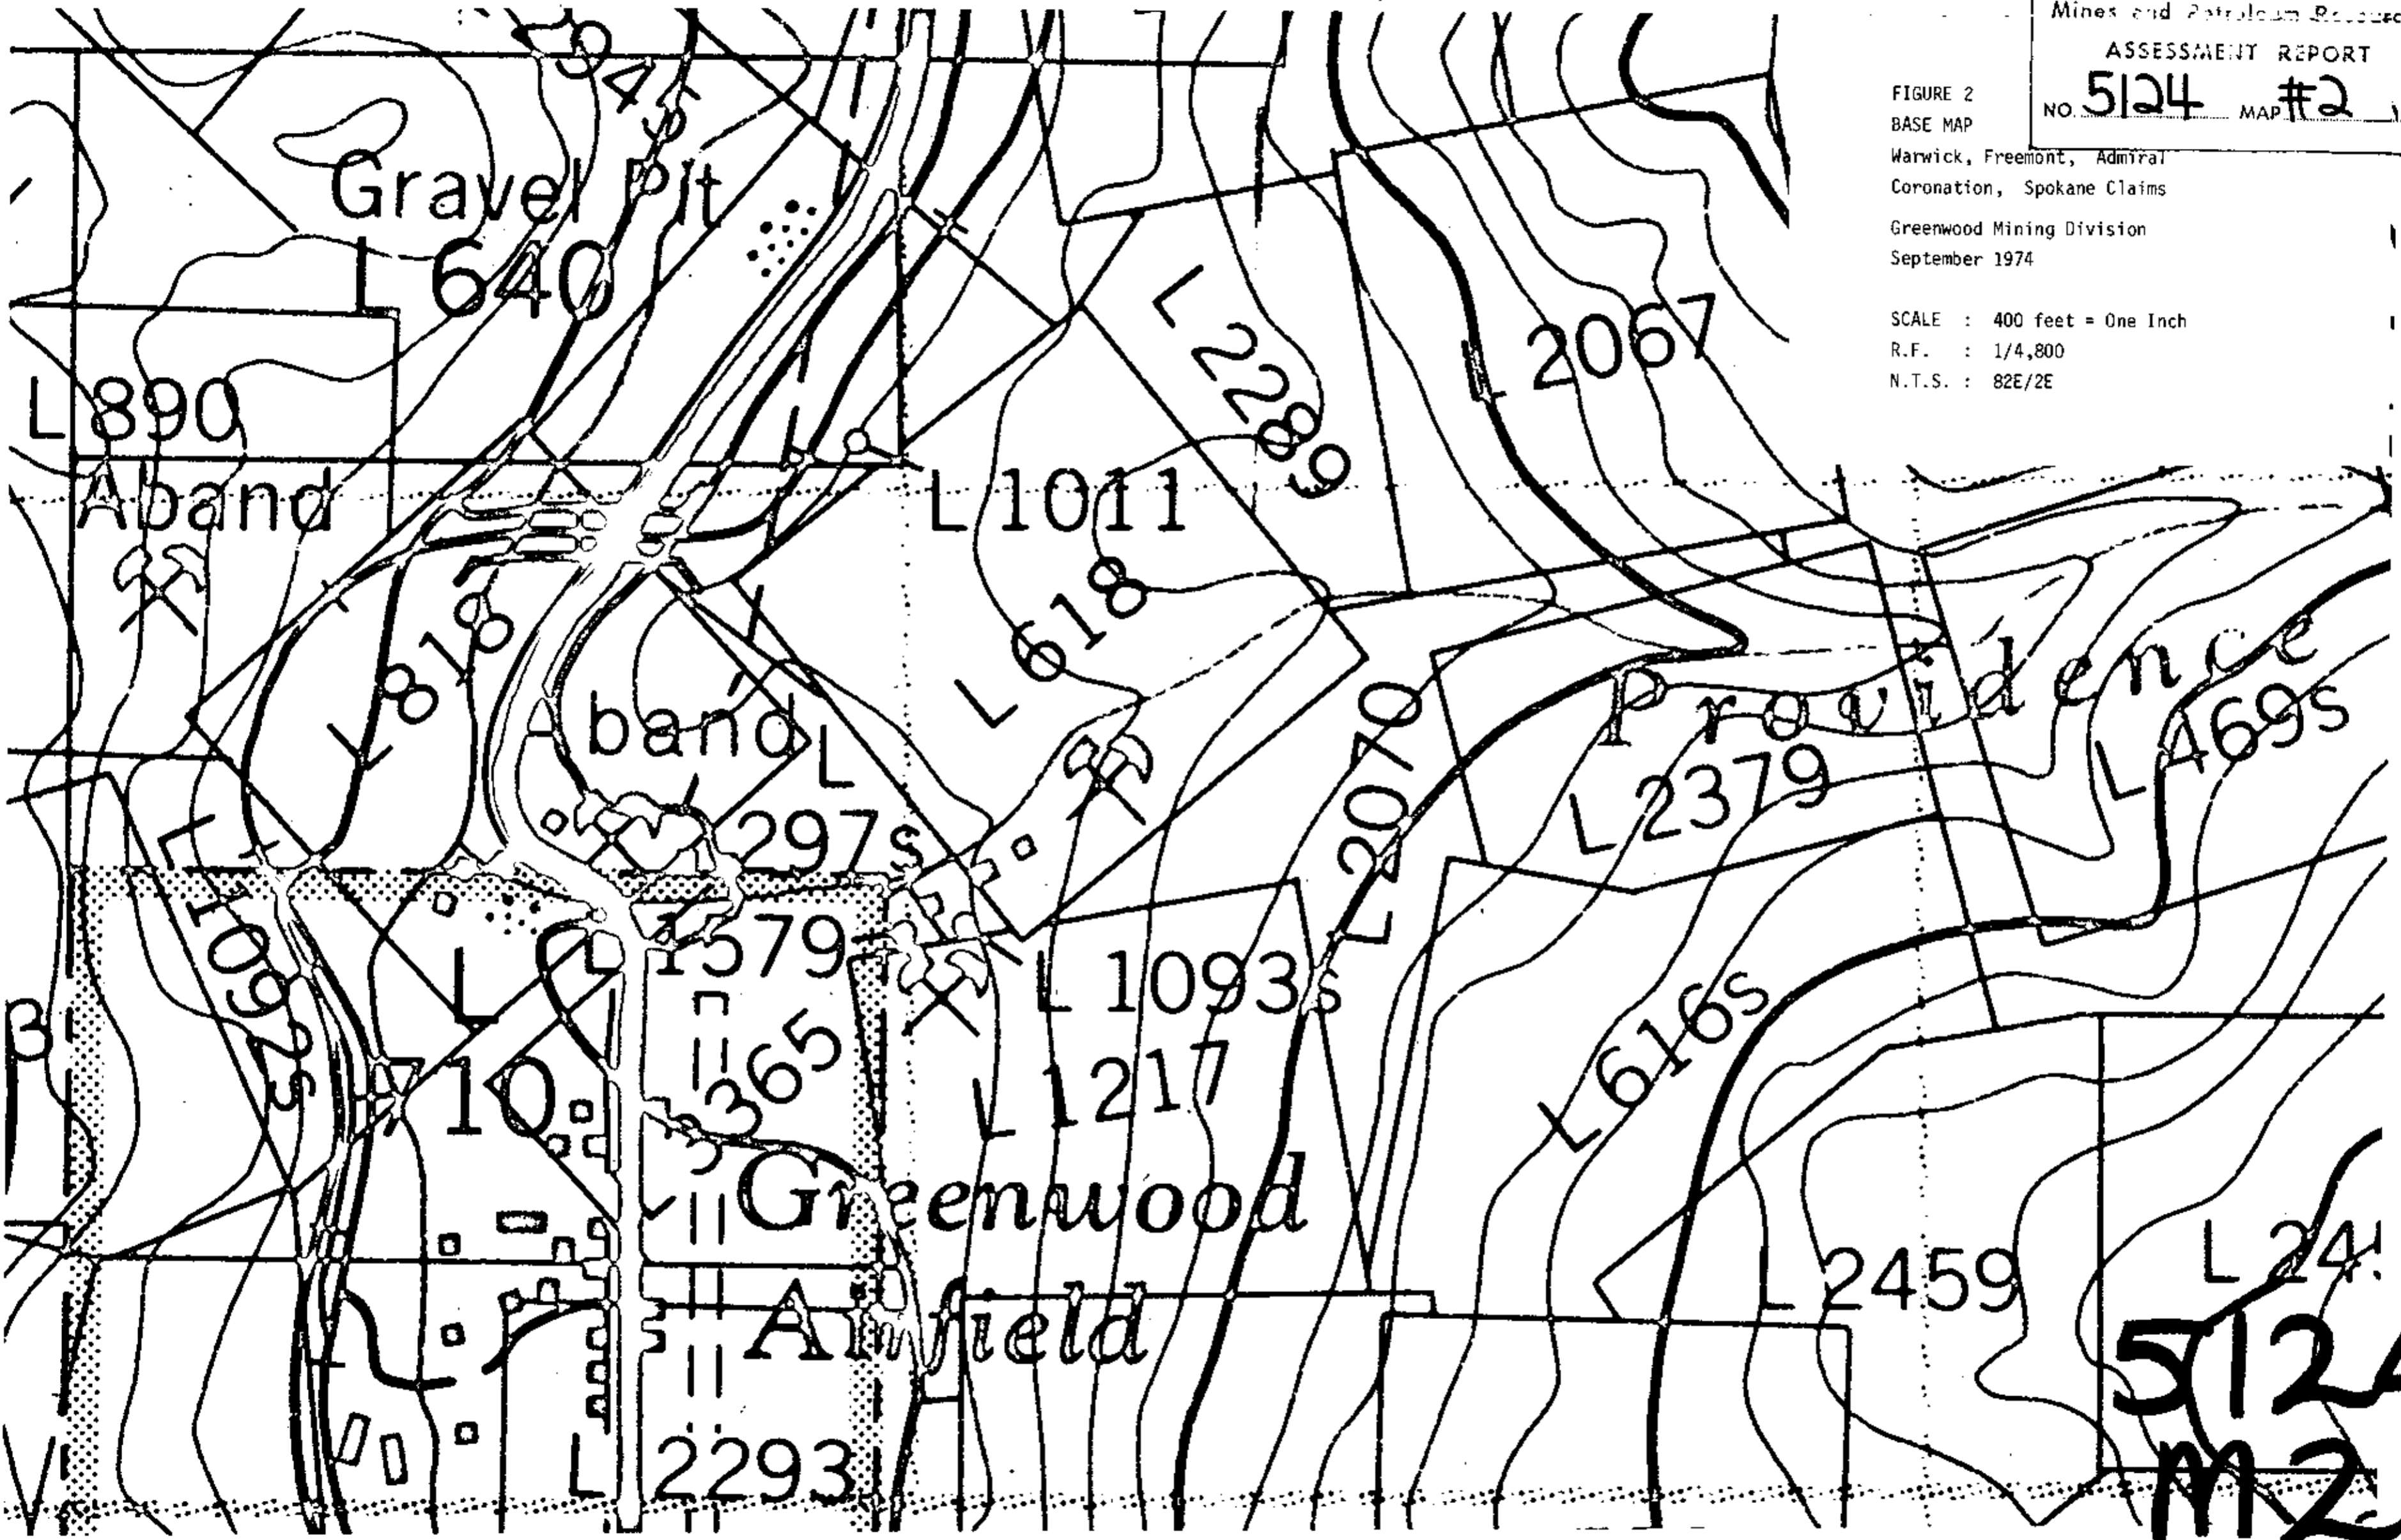 Mines and Petroleum
ASSESSMENT REPORT
NO. 5124 MAP #2
FIGURE 2
BASE MAP
Warwick, Freemont, Admiral
Coronation, Spokane Claims
Greenwood Mining Division
September 1974
SCALE : 400 feet = One Inch
R.F. : 1/4,800
N.T.S. : 82E/2E
Gravel Pit
L 640
L 2289
L 2067
L 890
Aband
L 1011
L 618
L 818
band
L
297s
L 2070
Providence
L 2379
L 469s
L 1092s
L 1579
L 1093s
L
710
365
L 1217
L 616s
Greenwood
Airfield
L 2459
L 24
512
M 2
L 2293